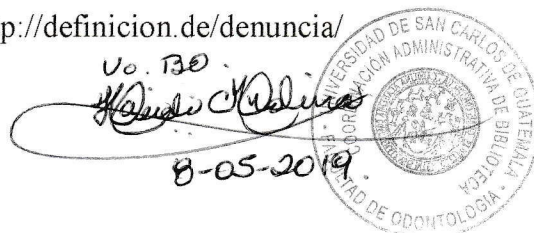 p://definicion.de/denuncia/
Vo. Bo.
8-05-2019.
UNIVERSIDAD DE SAN CARLOS DE GUATEMALA
COORDINACIÓN ADMINISTRATIVA DE BIBLIOTECA
FACULTAD DE ODONTOLOGIA